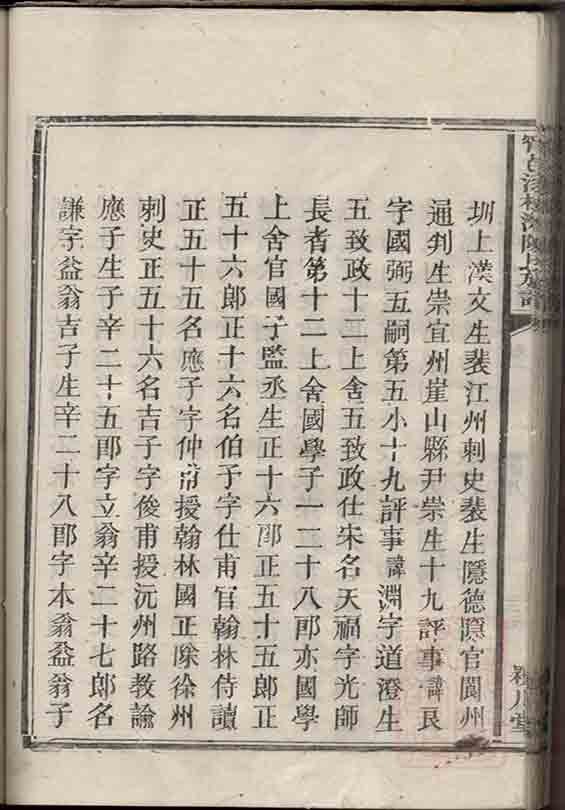 圳上漢文生裴江州刺史裴生隱德隱官閬州
通判生崇宜州崖山縣尹崇生十九評事諱民
字國弼五嗣第五小十九評事諱淵字道澄生
五致政十二上舍五致政仕宋名天福字光師
長者第十二上舍國學子一二十八郎亦國學
上舍官國子監丞生正十六郎正五十五郎正
五十六郎正十六名伯子字仕甫官翰林侍讀
正五十五名應子字仲甫授翰林國正除徐州
刺史正五十六名吉子字俊甫授沅州路教諭
應子生子辛二十五郎字立翁辛二十七郎名
謙字益翁吉子生辛二十八郎字本翁益翁子
潁川堂